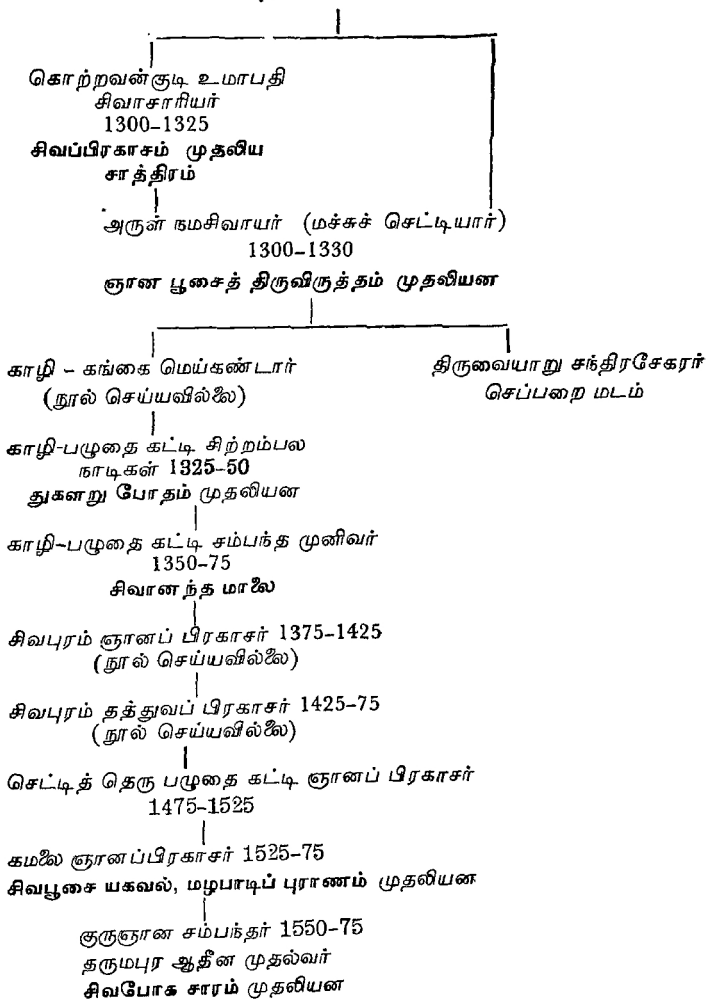 கொற்றவன்குடி உமாபதி
சிவாசாரியர்
1300–1325
சிவப்பிரகாசம் முதலிய
சாத்திரம்
அருள் நமசிவாயர் (மச்சுச் செட்டியார்)
1300-1330
ஞான பூசைத் திருவிருத்தம் முதலியன
காழி – கங்கை மெய்கண்டார்
(நூல் செய்யவில்லை)
திருவையாறு சந்திரசேகரர்
செப்பறை மடம்
காழி-பழுதை கட்டி சிற்றம்பல
நாடிகள் 1325–50
துகளறு போதம் முதலியன
காழி-பழுதை கட்டி சம்பந்த முனிவர்
1350-75
சிவானந்த மாலை
சிவபுரம் ஞானப் பிரகாசர் 1375-1425
(நூல் செய்யவில்லை)
சிவபுரம் தத்துவப் பிரகாசர் 1425-75
(நூல் செய்யவில்லை)
செட்டித் தெரு பழுதை கட்டி ஞானப் பிரகாசர்
1475-1525
கமலை ஞானப்பிரகாசர் 1525-75
சிவபூசை யகவல், மழபாடிப் புராணம் முதலியன
குருஞான சம்பந்தர் 1550-75
தருமபுர ஆதீன முதல்வர்
சிவபோக சாரம் முதலியன